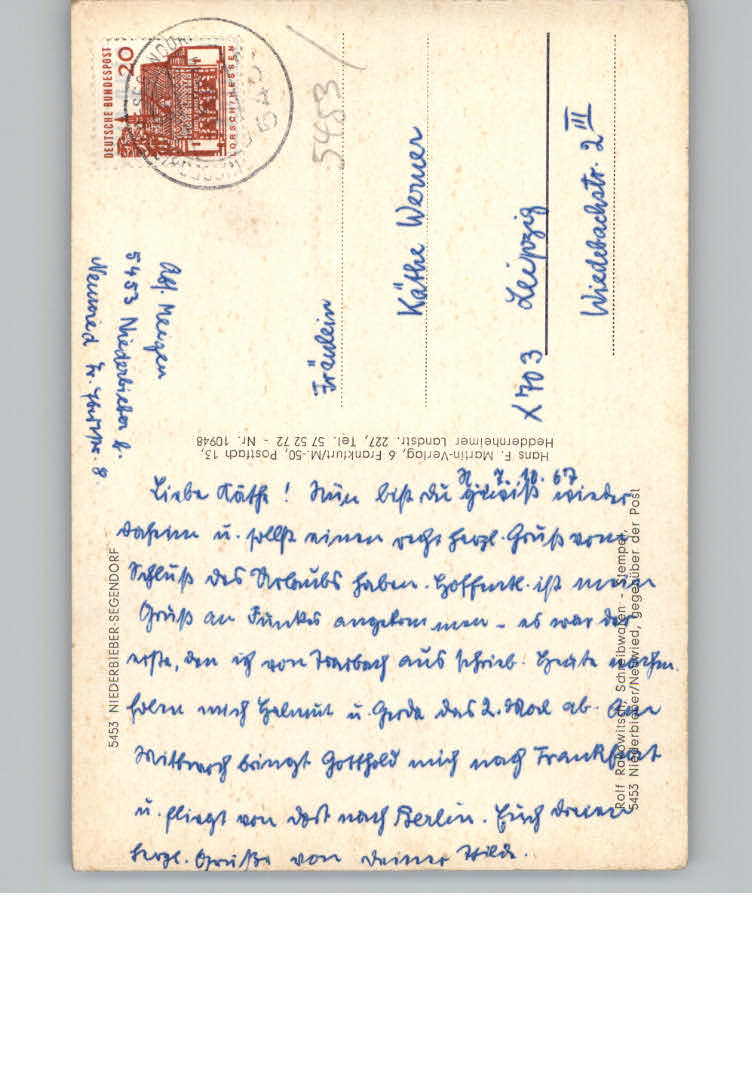 DEUTSCHE BUNDESPOST
20
LORSCH/HESSEN
5453
Fräulein
Käthe Werner
X 703 Leipzig
Wiedebachstr. 2 III
Abs. Meizen
5453 Niederbieber b.
Neuwied Fr. 8
Hans F. Martin-Verlag, 6 Frankfurt/M.-50, Postfach 13,
Heddernheimer Landstr. 227, Tel. 57 52 72 - Nr. 10948
N. 7. 10. 67
Liebe Käthe! Nun bist du gewiß wieder
daheim u. sollst einen recht herzl. Gruß vom
Schluß des Urlaubs haben. Hoffentl. ist mein
Gruß an Funkes angekommen - es war der
erste, den ich von Trarbach aus schrieb. Heute nachm.
holen mich Helmut u. Gerda das 2. Mal ab. Am
Mittwoch bringt Gotthold mich nach Frankfurt
u. fliegt von dort nach Berlin. Euch dreien
herzl. Grüße von Deiner Hilde.
5453 NIEDERBIEBER-SEGENDORF
Rolf Rakowitsch, Schreibwaren - Stempel,
5453 Niederbieber/Neuwied, gegenüber der Post